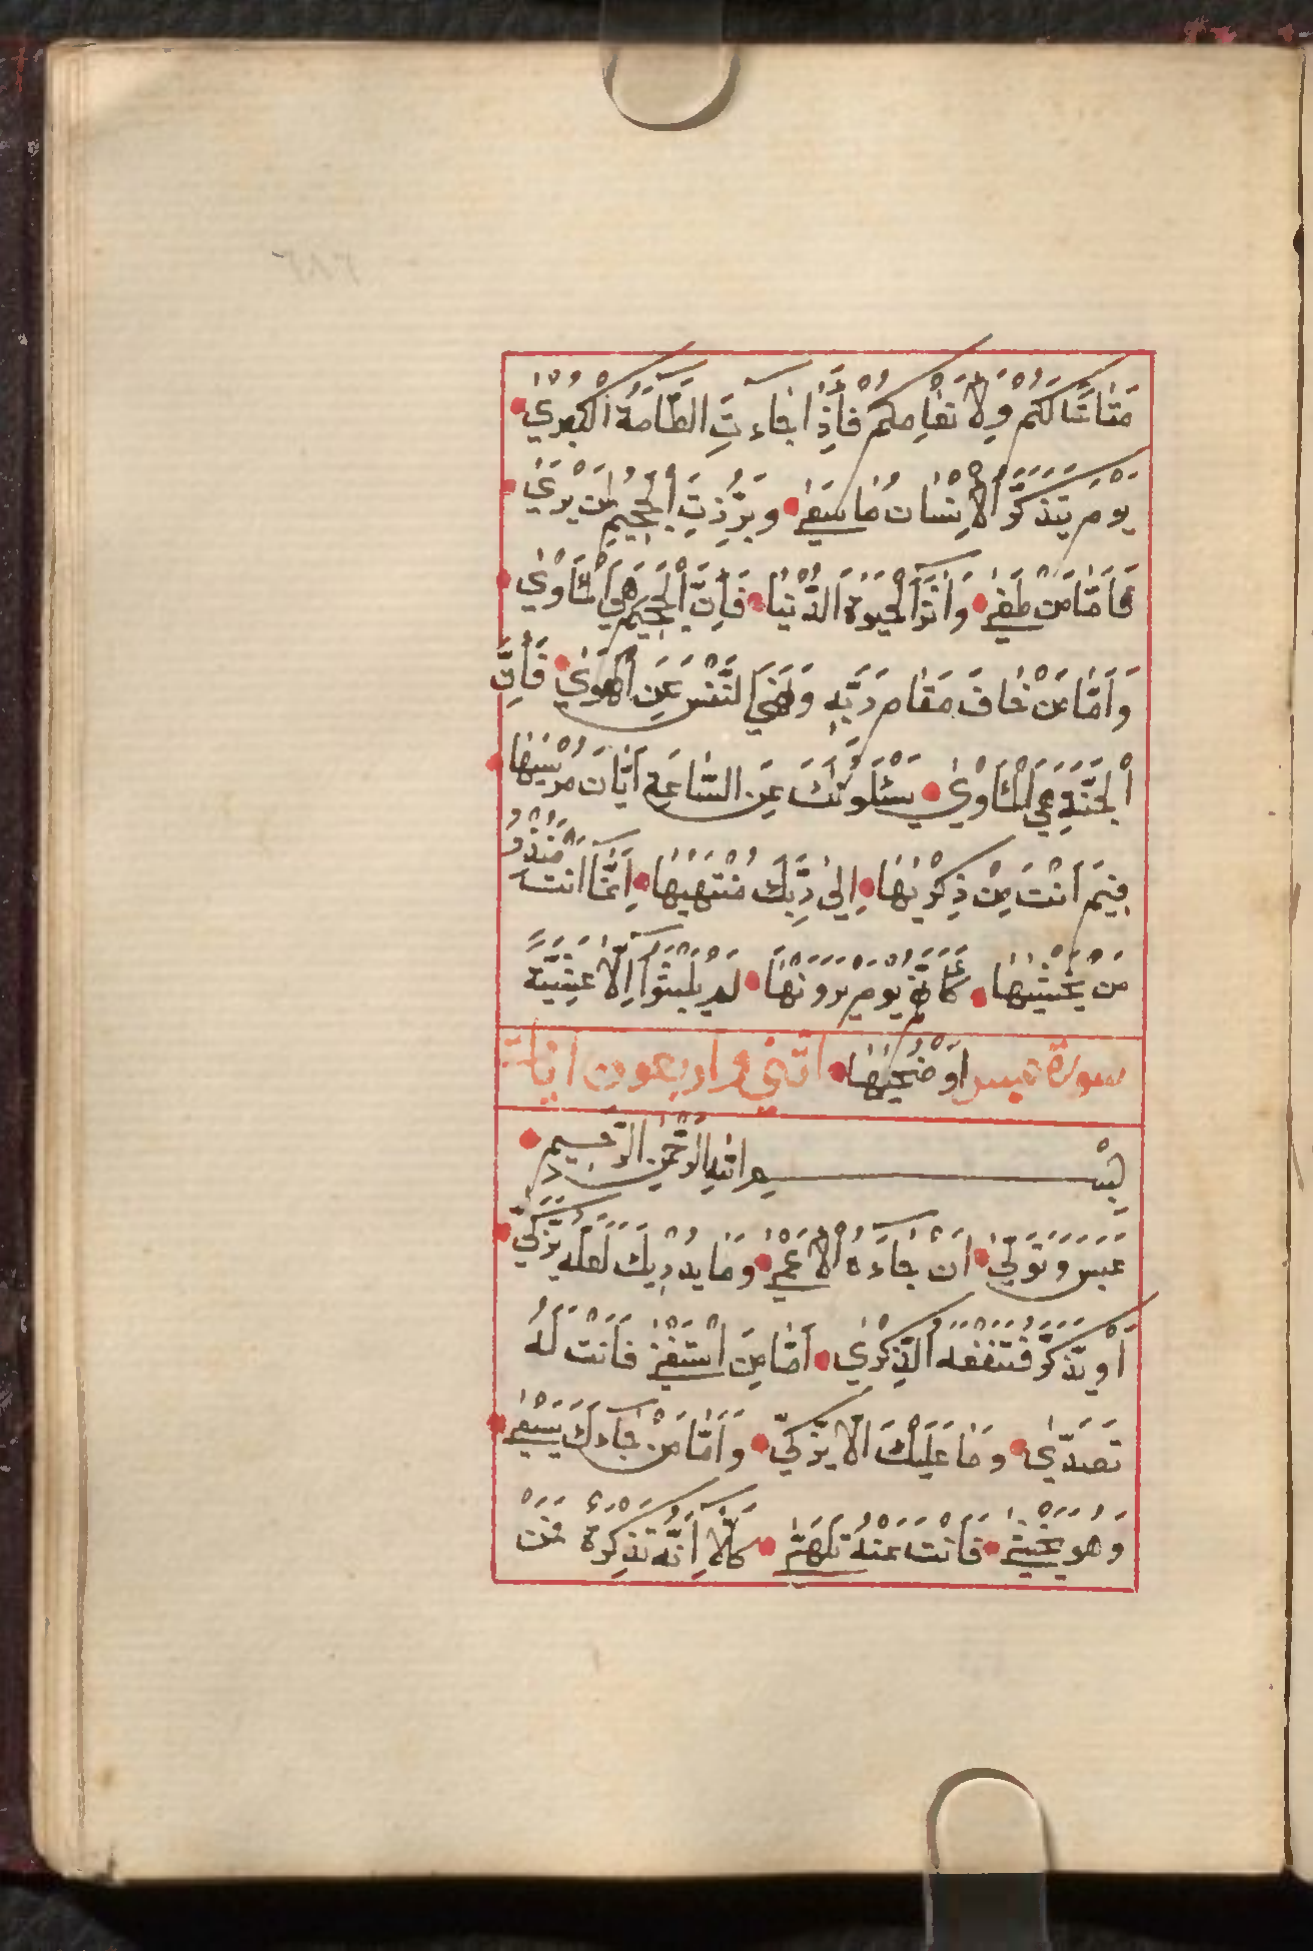 مَتَاعًا لَكُمْ وَلِأَنْعَامِكُمْ فَإِذَا جَاءَتِ الطَّامَّةُ الْكُبْرَىٰ
يَوْمَ يَتَذَكَّرُ الْإِنْسَانُ مَا سَعَىٰ وَبُرِّزَتِ الْجَحِيمُ لِمَنْ يَرَىٰ
فَأَمَّا مَنْ طَغَىٰ وَاٰثَرَ الْحَيٰوةَ الدُّنْيَا فَإِنَّ الْجَحِيمَ هِيَ الْمَأْوَىٰ
وَأَمَّا مَنْ خَافَ مَقَامَ رَبِّهِ وَنَهَى النَّفْسَ عَنِ الْهَوَىٰ فَإِنَّ
الْجَنَّةَ هِيَ الْمَأْوَىٰ يَسْئَلُونَكَ عَنِ السَّاعَةِ أَيَّانَ مُرْسٰيهَا
فِيمَ أَنْتَ مِنْ ذِكْرٰيهَا إِلَىٰ رَبِّكَ مُنْتَهٰيهَا إِنَّمَا أَنْتَ مُنْذِرُ
مَنْ يَخْشٰيهَا كَأَنَّهُمْ يَوْمَ يَرَوْنَهَا لَمْ يَلْبَثُوا إِلَّا عَشِيَّةً
أَوْ ضُحٰيهَا
سورة عبس اثني واربعون ايات
بِسْمِ اللهِ الرَّحْمٰنِ الرَّحِيمِ
عَبَسَ وَتَوَلَّىٰ أَنْ جَاءَهُ الْأَعْمَىٰ وَمَا يُدْرِيكَ لَعَلَّهُ يَزَّكَّىٰ
أَوْ يَذَّكَّرُ فَتَنْفَعَهُ الذِّكْرَىٰ أَمَّا مَنِ اسْتَغْنَىٰ فَأَنْتَ لَهُ
تَصَدَّىٰ وَمَا عَلَيْكَ أَلَّا يَزَّكَّىٰ وَأَمَّا مَنْ جَاءَكَ يَسْعَىٰ
وَهُوَ يَخْشَىٰ فَأَنْتَ عَنْهُ تَلَهَّىٰ كَلَّا إِنَّهُ تَذْكِرَةٌ فَمَنْ